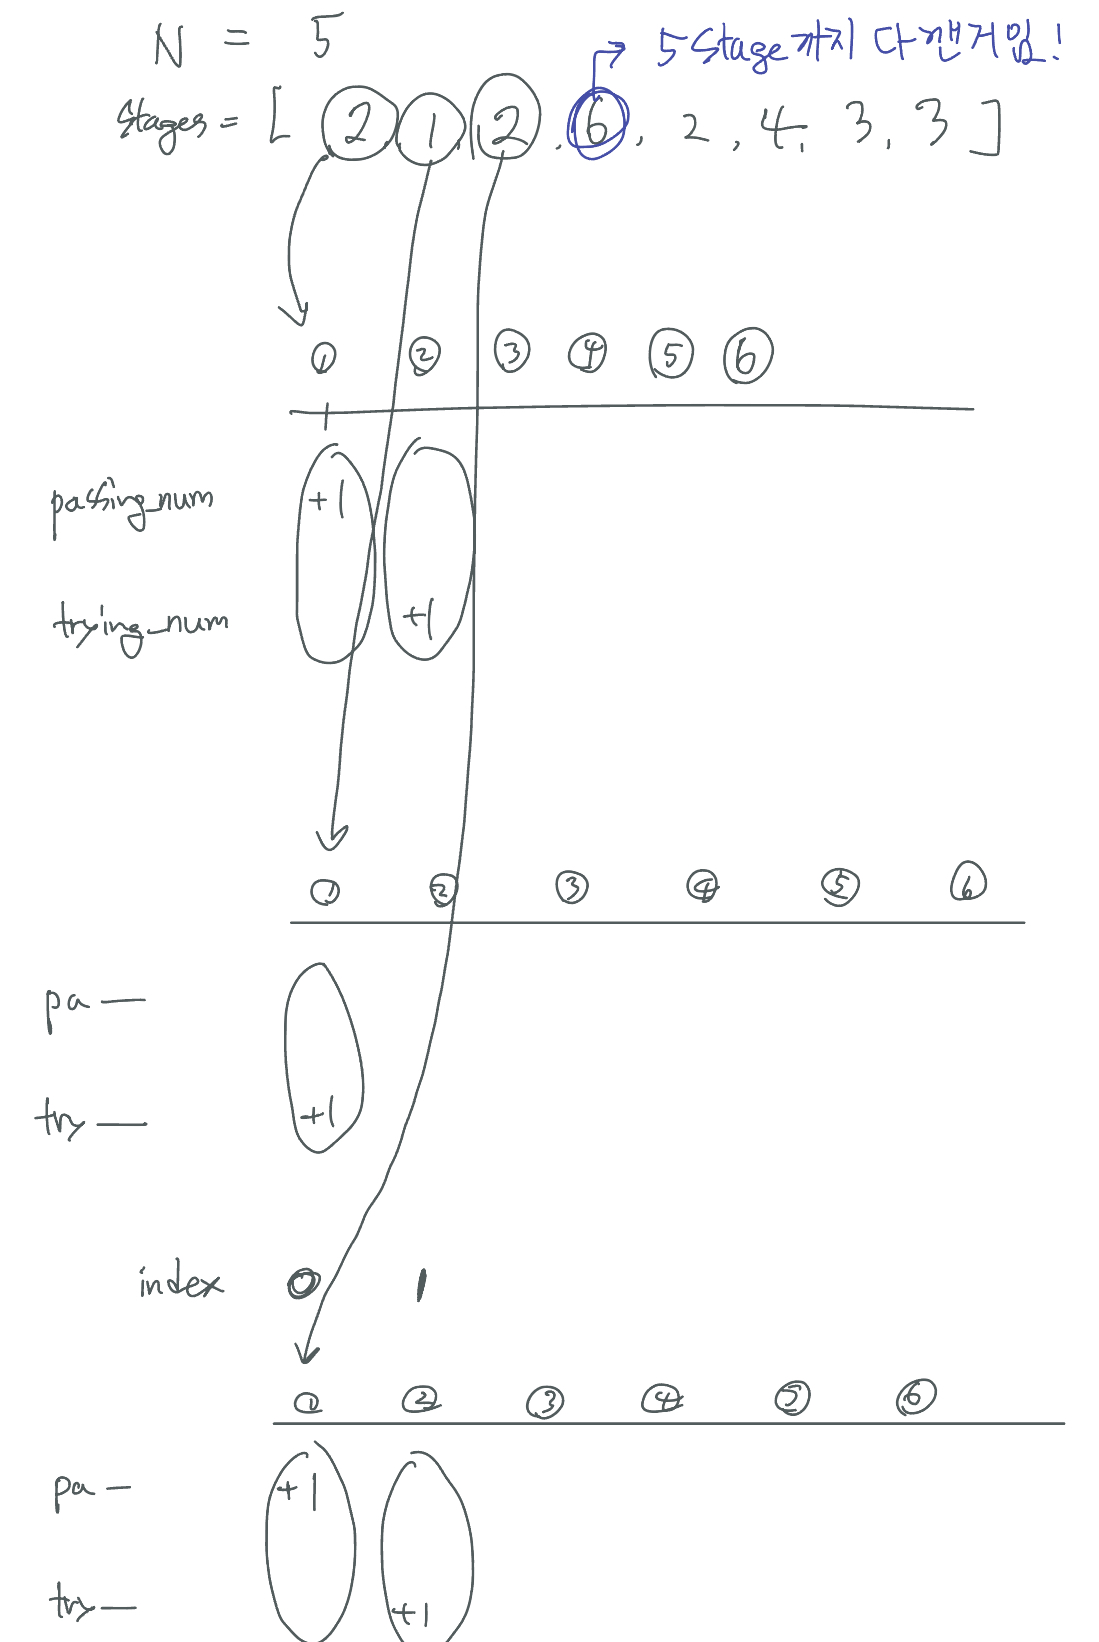 N = 5
5 Stage까지 다깬거임!
Stages = [ 2, 1, 2, 6, 2, 4, 3, 3 ]
① ② ③ ④ ⑤ ⑥
passing_num +1
trying_num +1
① ② ③ ④ ⑤ ⑥
pa —
try — +1
index 0 1
① ② ③ ④ ⑤ ⑥
pa — +1
try — +1